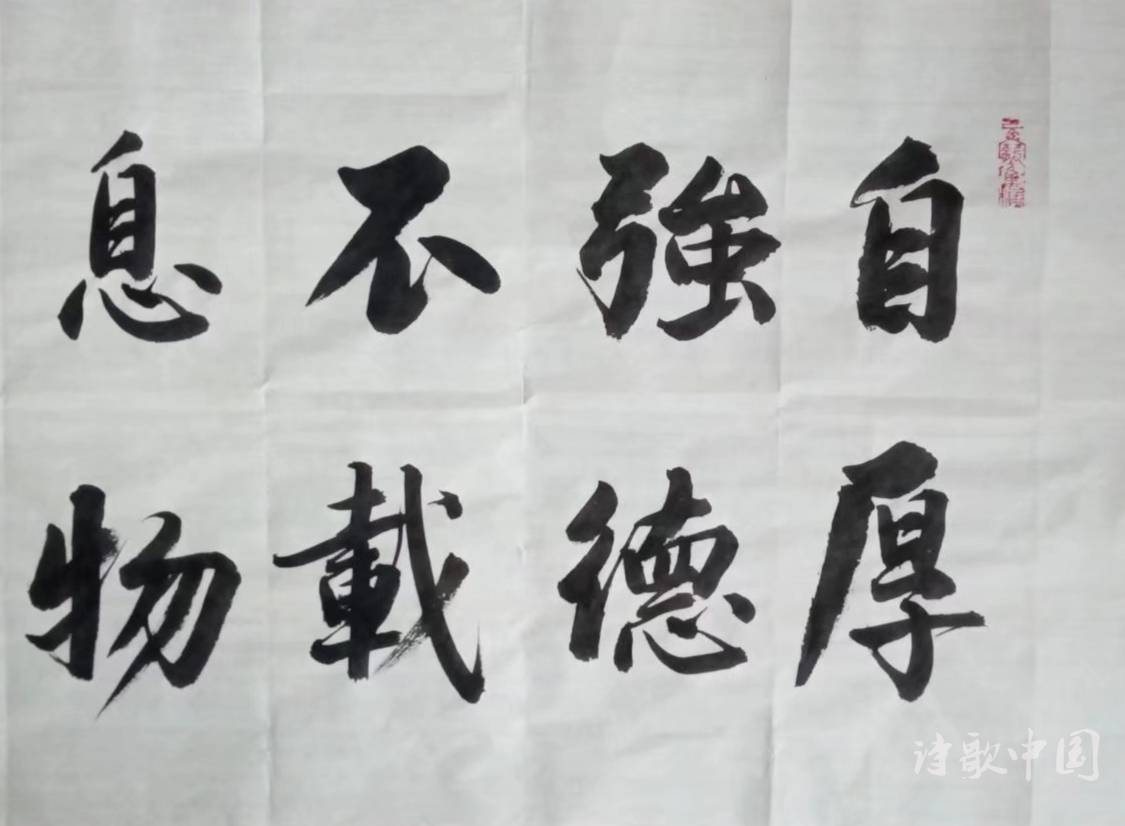 自強不息
厚德載物
诗歌中国